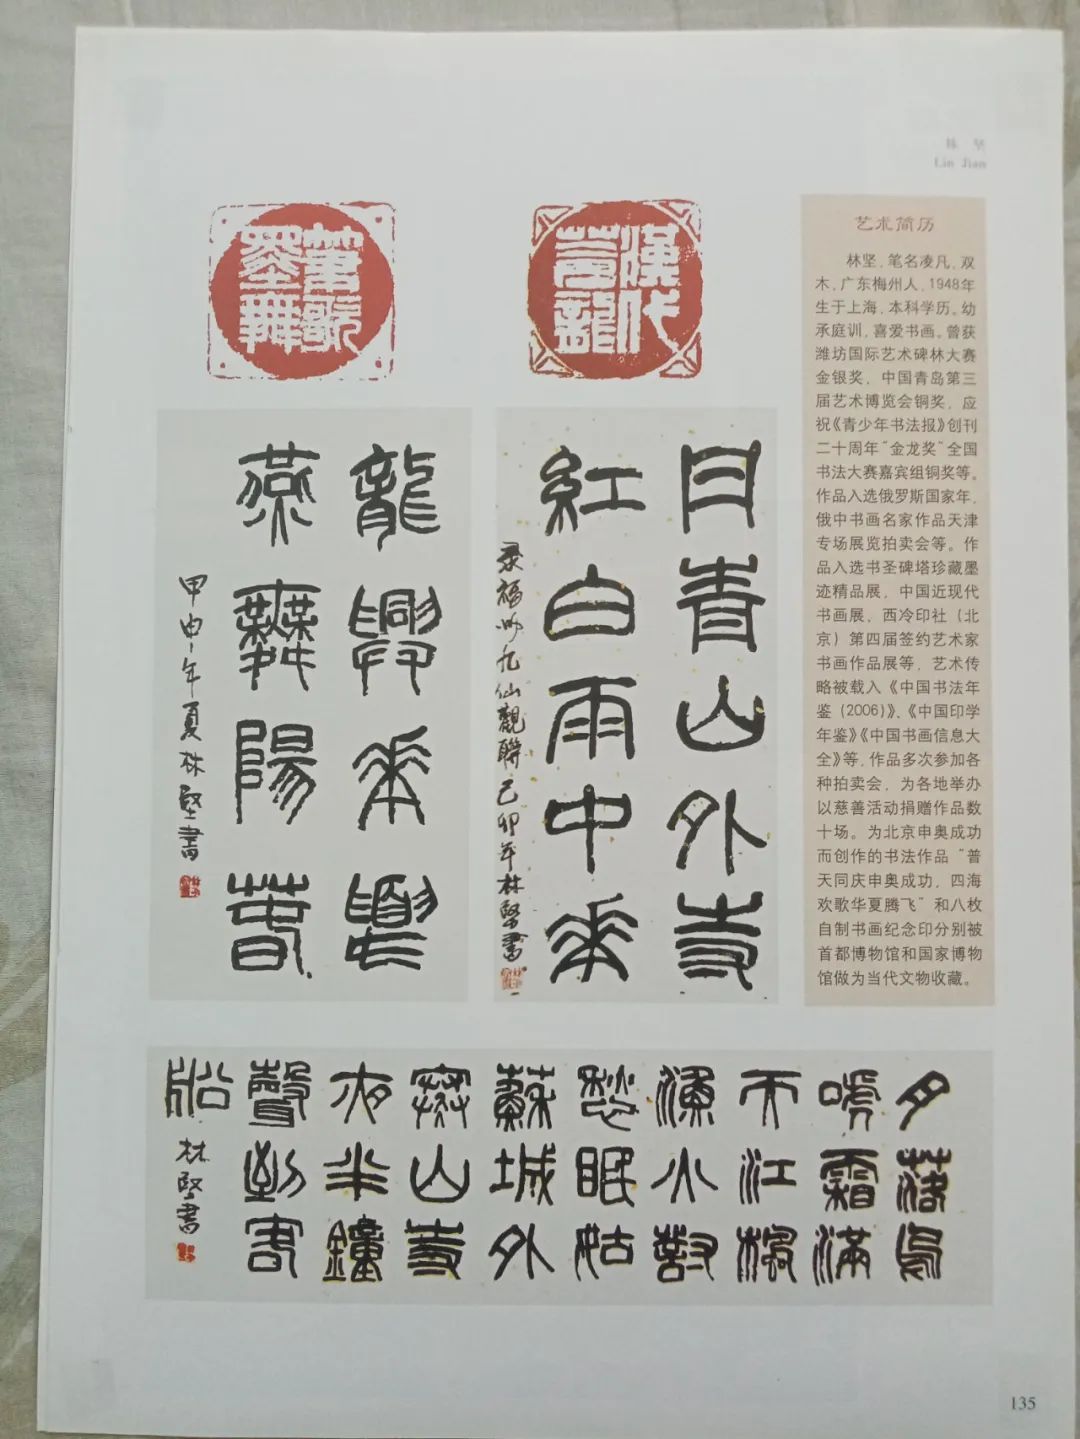 林 坚
Lin Jian
艺术简历
林坚，笔名凌凡，双
木，广东梅州人，1948年
生于上海，本科学历。幼
承庭训，喜爱书画。曾获
潍坊国际艺术碑林大赛
金银奖，中国青岛第三
届艺术博览会铜奖，应
祝《青少年书法报》创刊
二十周年“金龙奖”全国
书法大赛嘉宾组铜奖等。
作品入选俄罗斯国家年，
俄中书画名家作品天津
专场展览拍卖会等。作
品入选书圣碑塔珍藏墨
迹精品展，中国近现代
书画展，西泠印社（北
京）第四届签约艺术家
书画作品展等，艺术传
略被载入《中国书法年
鉴（2006）》、《中国印学
年鉴》《中国书画信息大
全》等，作品多次参加各
种拍卖会，为各地举办
以慈善活动捐赠作品数
十场。为北京申奥成功
而创作的书法作品“普
天同庆申奥成功，四海
欢歌华夏腾飞”和八枚
自制书画纪念印分别被
首都博物馆和国家博物
馆做为当代文物收藏。
漢代
龍
筆歌
墨舞
日青山外寺
紅白雨中華
九仙觀聯己卯年林堅書
龍興華
燕舞陽春
甲申年夏林堅書
月落烏
啼霜滿
天江楓
漁火對
愁眠姑
蘇城外
寒山寺
夜半鐘
聲到客
船
林堅書
135